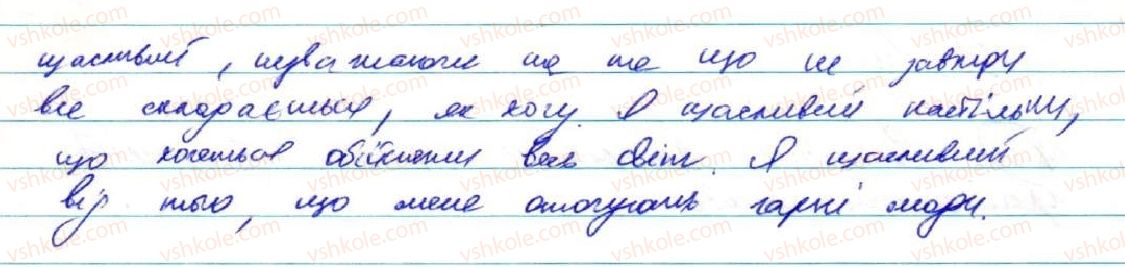 щасливий, незважаючи на те що не завжди
все складається, як хочу. Я щасливий настільки,
що хочеться обійняти весь світ. Я щасливий
від того, що мене оточують гарні люди.